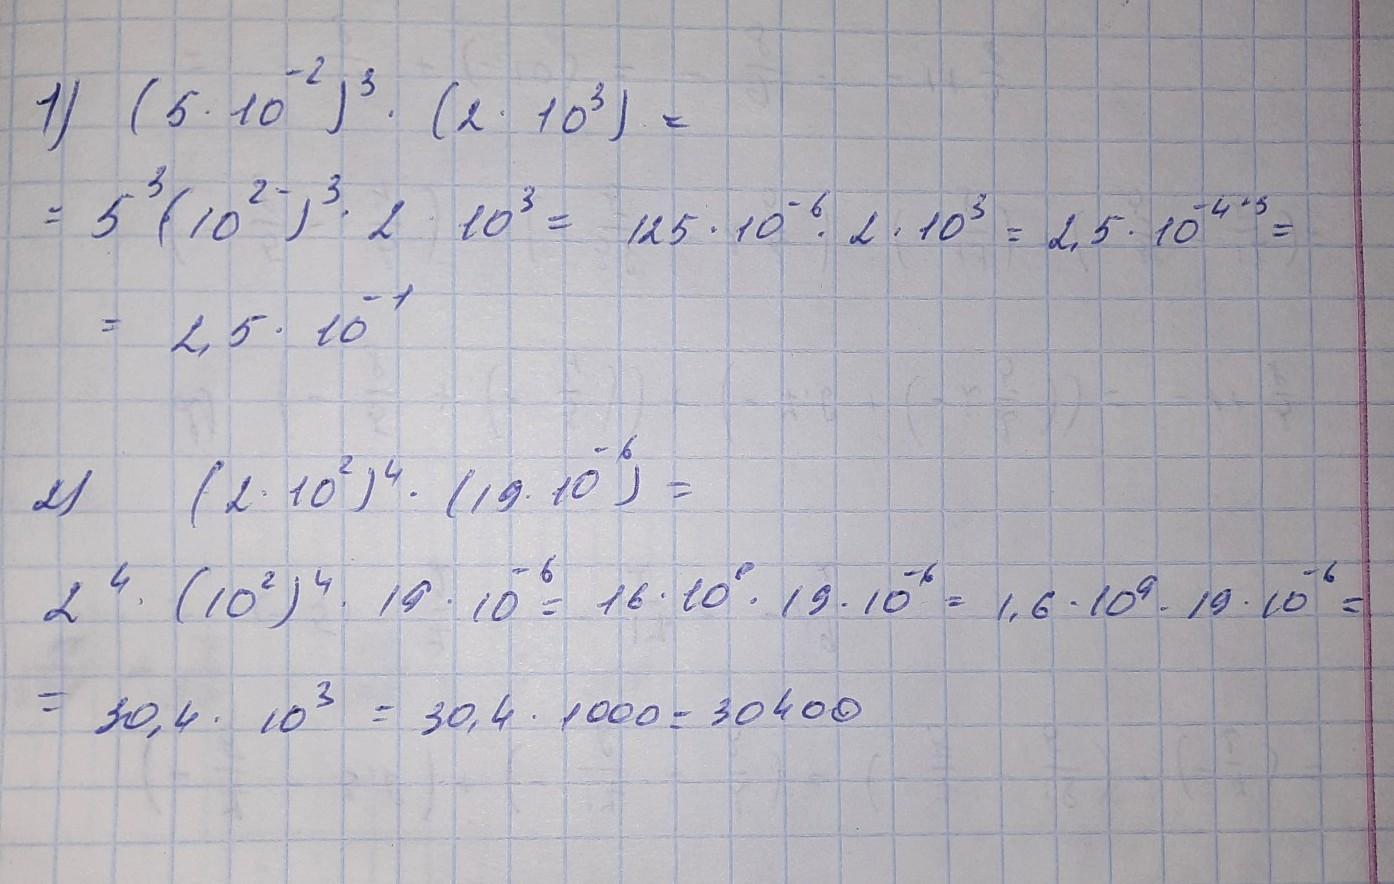 1) (5 · 10⁻²)³ · (2 · 10³) =
= 5³(10²⁻)³ · 2 · 10³ = 125 · 10⁻⁶ · 2 · 10³ = 2,5 · 10⁻⁴⁺³ =
= 2,5 · 10⁻¹
2) (2 · 10²)⁴ · (19 · 10⁻⁶) =
2⁴ · (10²)⁴ · 19 · 10⁻⁶ = 16 · 10⁸ · 19 · 10⁻⁶ = 1,6 · 10⁹ · 19 · 10⁻⁶ =
= 30,4 · 10³ = 30,4 · 1000 = 30400